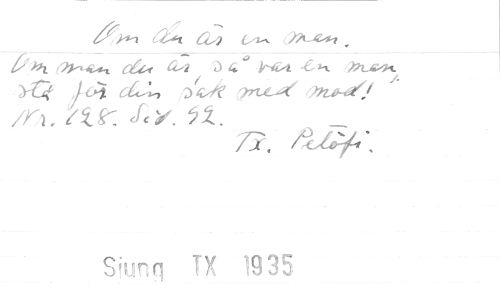 Om du är en man.
Om man du är, så var en man,
stå för din sak med mod!
Nr. 128. Sid. 92.
Tx. Petöfi.
Sjung TX 1935